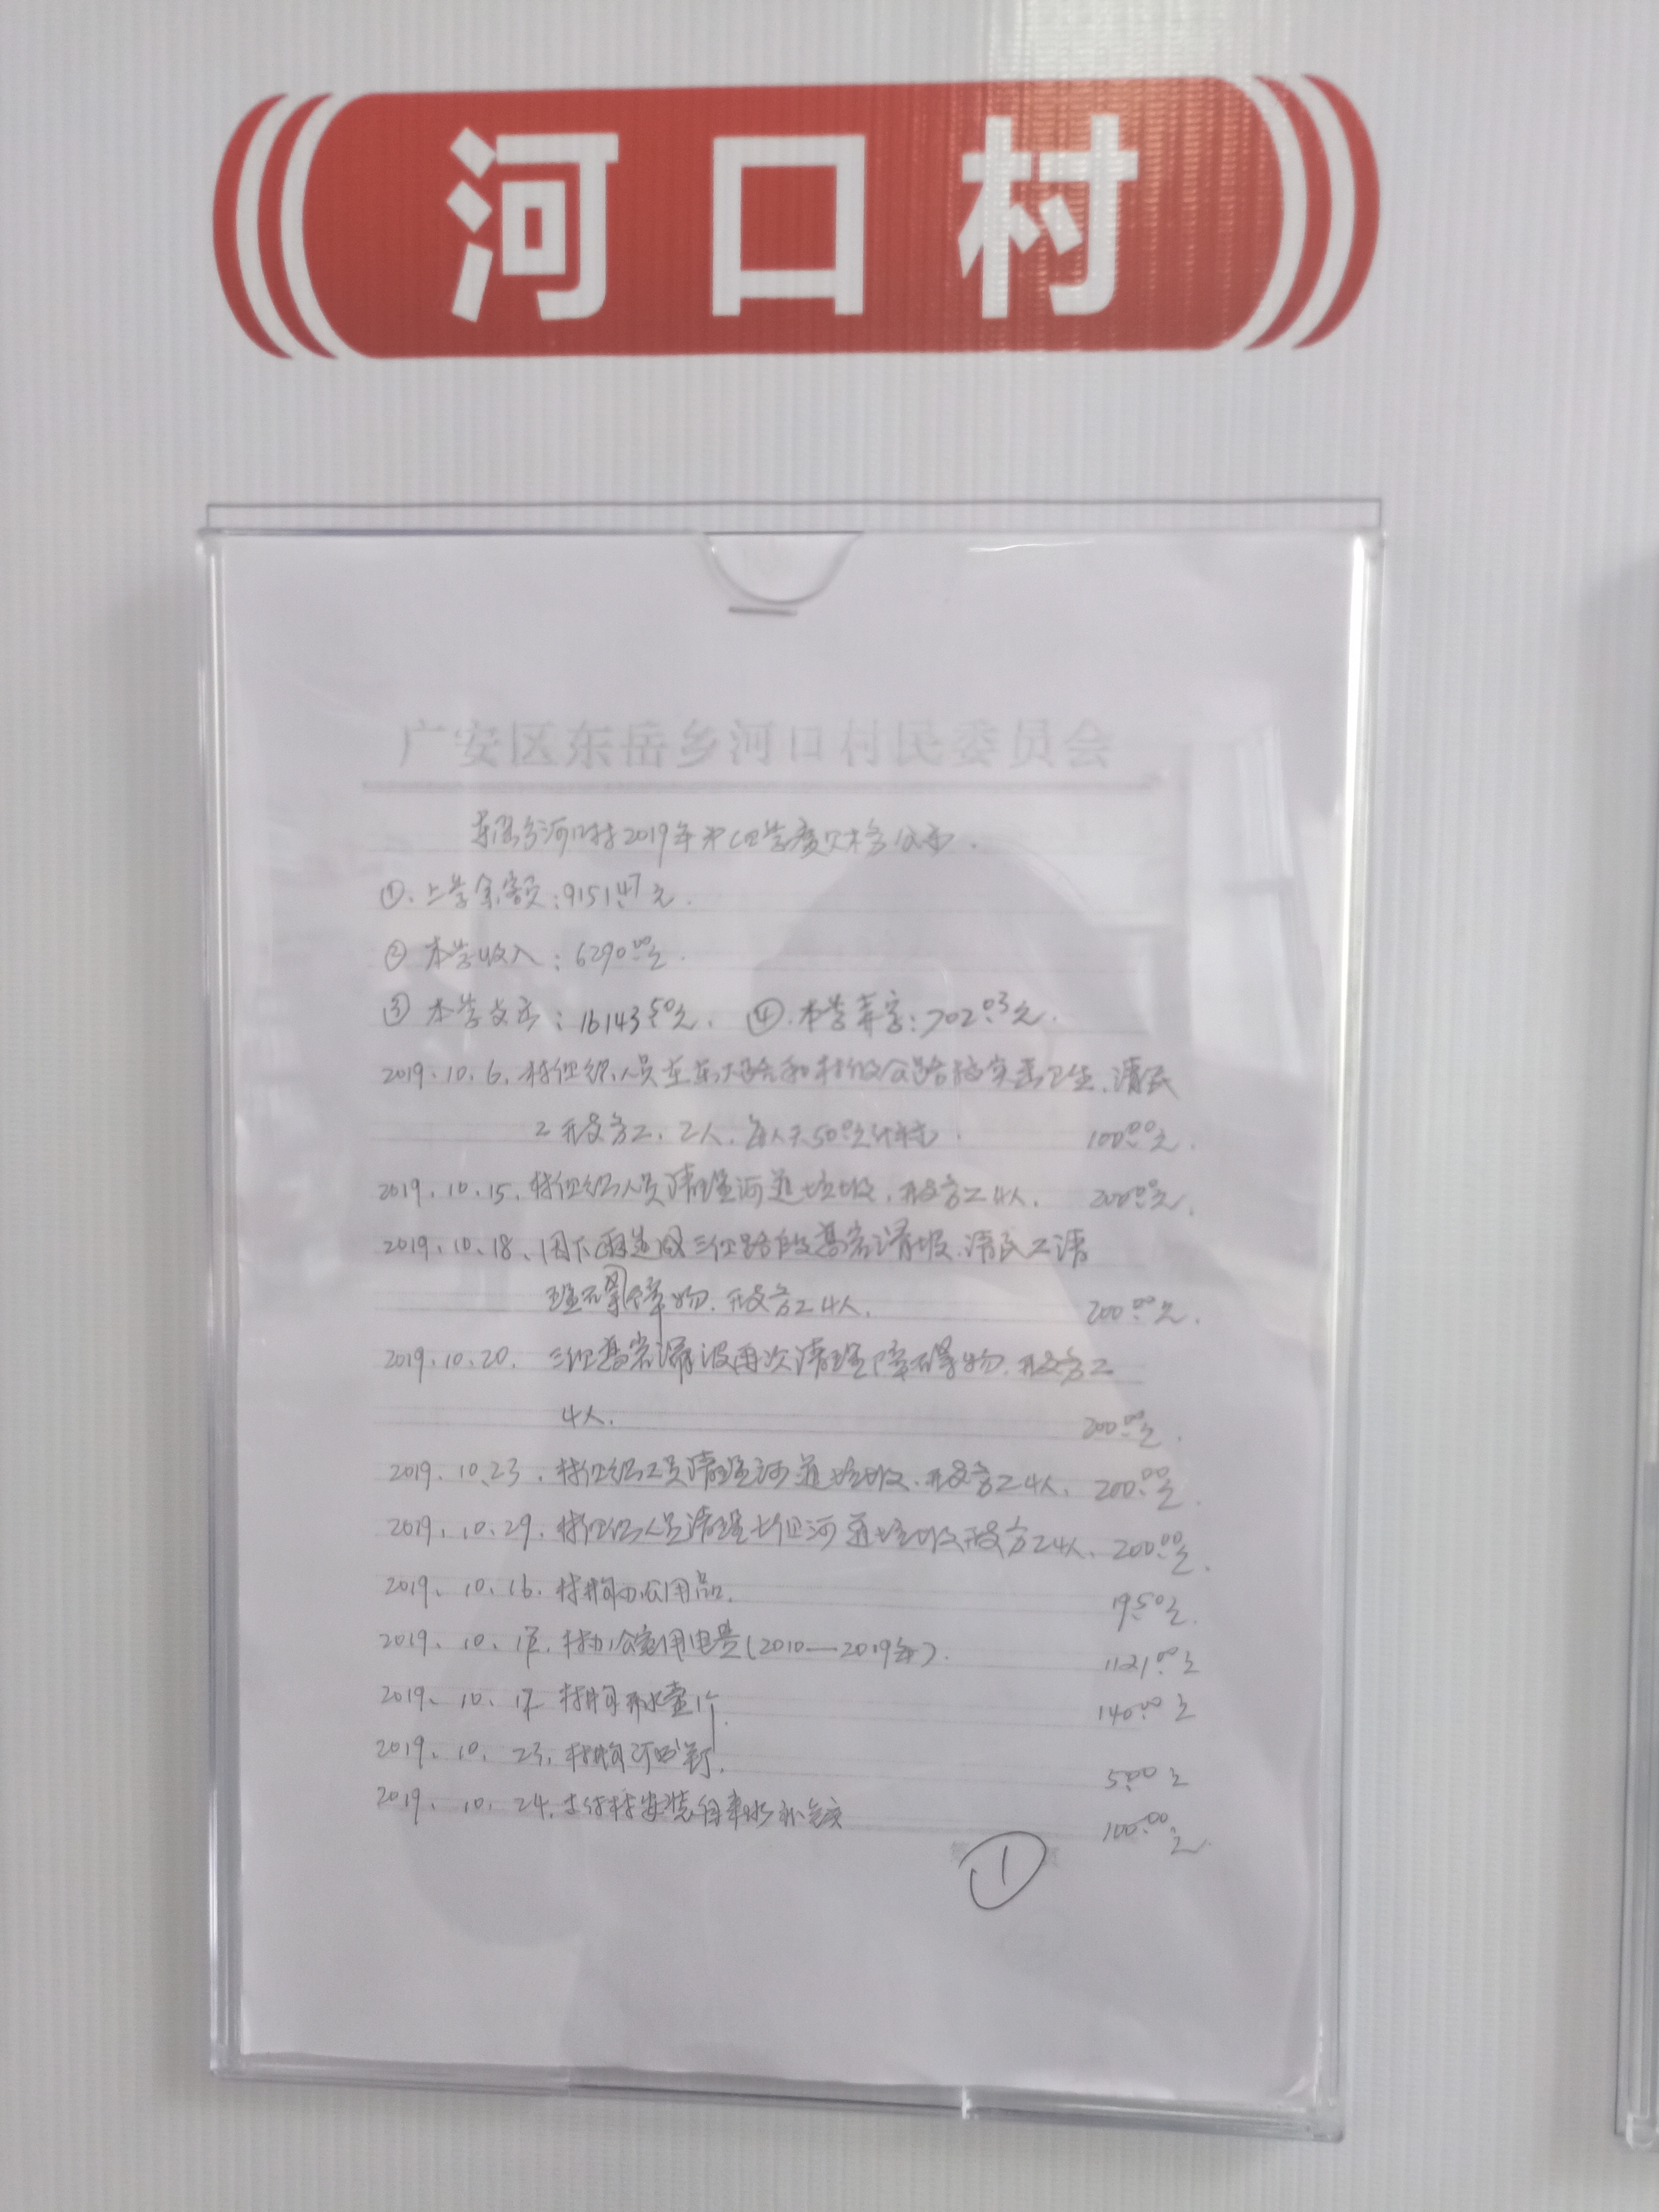 河口村
广安区东岳乡河口村民委员会
东岳乡河口村2019年第四季度财务公布.
①.上季余额:9151.47元.
② 本季收入:6290.00元.
③ 本季支出:16143.50元. ④.本季 :702.03元.
2019.10.6.村组织人员在东 路和村级公路 卫生.请民
工 开支方工.2人.每人天50元计 . 100.00元.
2019.10.15.村组织人员清理河道垃圾.开支方工4人. 200.00元.
2019.10.18.因下雨造成三组路段 岩滑坡.请民工清
理 障物.开支方工4人. 200.00元.
2019.10.20. 三组 岩滑坡再次清理障碍物.开支方工
4人. 200.00元.
2019.10.23.村组织人员清理河道垃圾.开支方工4人. 200.00元.
2019.10.29.村组织人员清理七组河道垃圾开支方工4人. 200.00元.
2019.10.16.村购办公用品. 19.50元.
2019.10.17.村办公室用电费(2010—2019年). 1121.00元
2019.10.17.村购开水壶1个. 140.00元
2019.10.23.村购订书钉. 5.00元
2019.10.24.支付村安装自来水 100.00元.
①